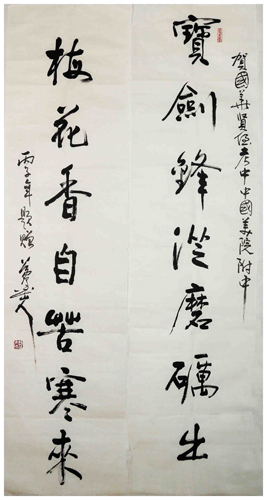 賀國華賢侄考中中國美院附中
寶劍鋒從磨礪出
梅花香自苦寒來
丙子年題贈